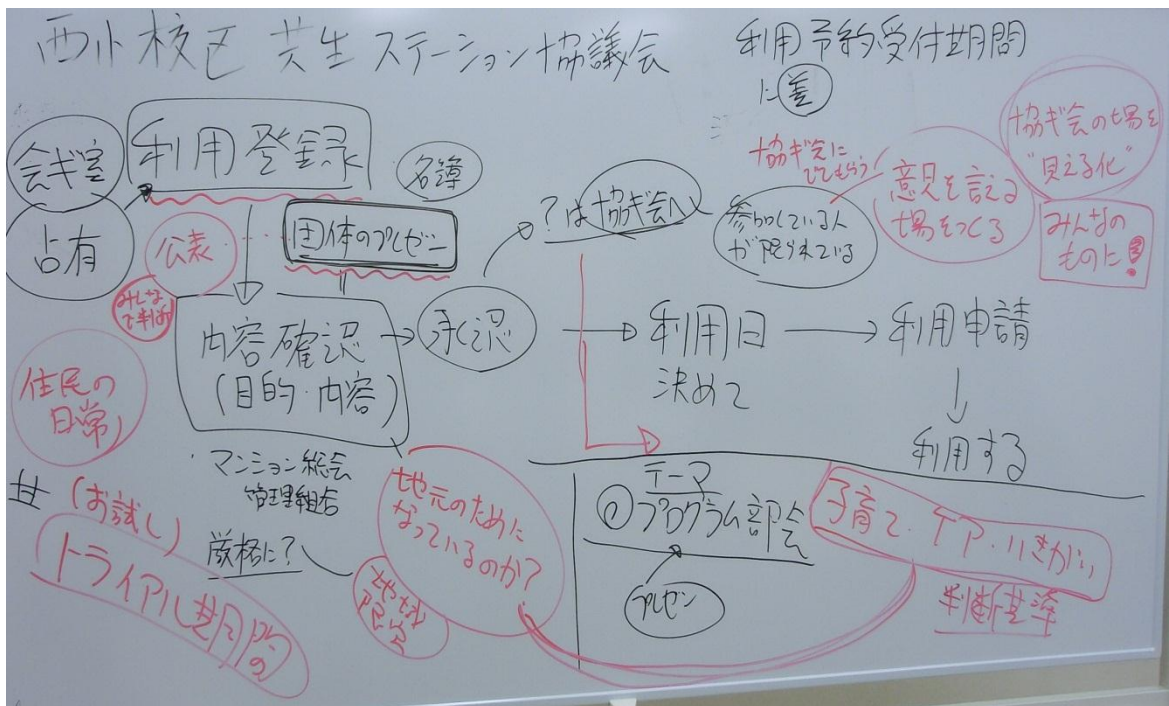 西小校区 共生ステーション協議会
利用予約受付期間
に差
会ギ室
占有
利用登録
名簿
公表
団体のプレゼン
みんな
で判断
?は協ギ会へ
協ギ会に
でてもらう!
参加している人
が限られている
意見を言える
場をつくる
協ギ会の場を
"見える化"
みんなの
ものに!
内容確認
(目的・内容)
承認
利用日
決めて
利用申請
利用する
住民の
日常
・マンション総会
管理組合
厳格に?
(お試し)
トライアル期間の
地元のために
なっているのか?
テーマ
プログラム部会
プレゼン
子育て・ケア・いきがい
判断基準